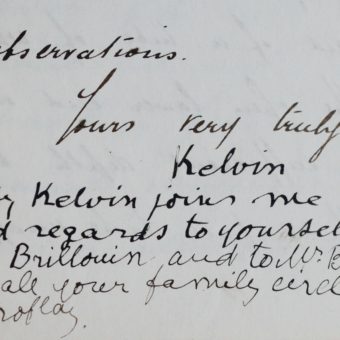 observations.
Yours very truly
Kelvin
Kelvin joins me
regards to yourself
Brillouin and to Mr. B
all your family circ
roflay.